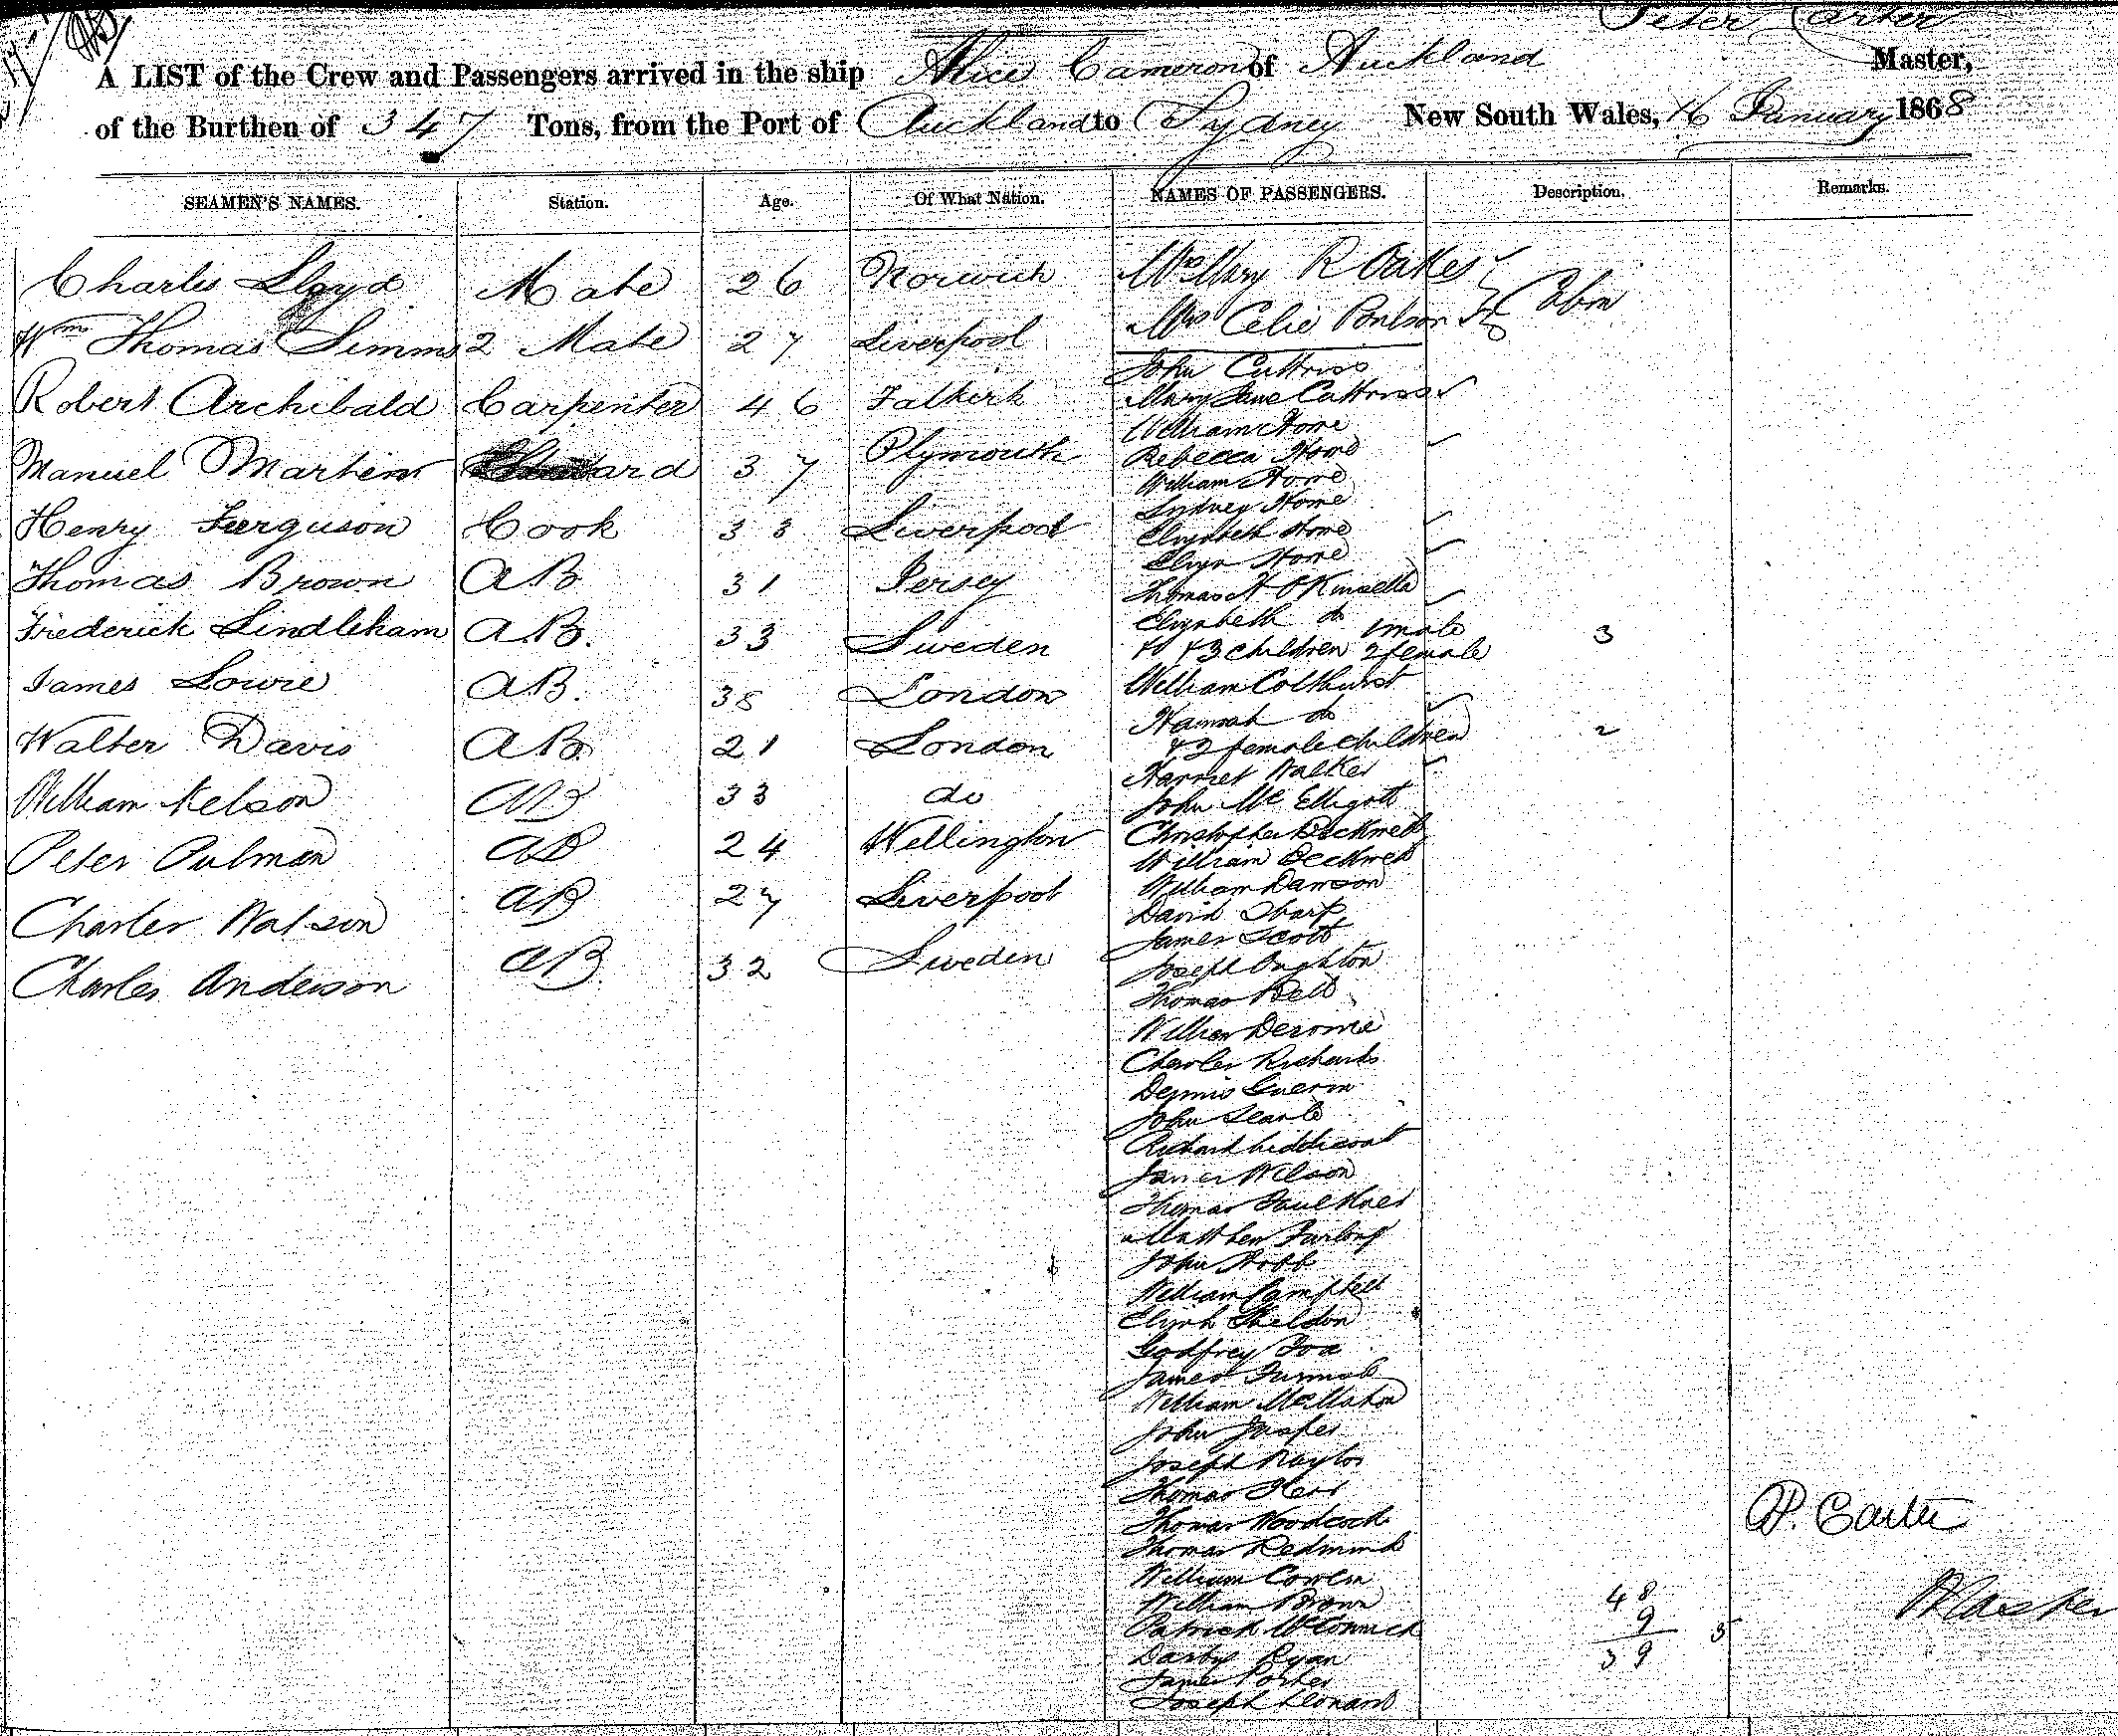 Peter Carter
A LIST of the Crew and Passengers arrived in the ship Alice Cameron of Auckland Master,
of the Burthen of 347 Tons, from the Port of Auckland to Sydney New South Wales, 16 January 1868
SEAMEN'S NAMES. Station. Age. Of What Nation. NAMES OF PASSENGERS. Description. Remarks.
Charles Lloyd Mate 26 Norwich
Wm Thomas Simms 2 Mate 27 Liverpool
Robert Archibald Carpenter 46 Falkirk
Manuel Martins 37 Plymouth
Henry Ferguson Cook 33 Liverpool
Thomas Brown AB 31 Jersey
Frederick Lindleham AB. 33 Sweden
James Lowie AB. 38 London
Walter Davis AB. 21 London
William Nelson AB 33 do
Peter Pulman AB 24 Wellington
Charles Watson AB 27 Liverpool
Charles Anderson AB. 32 Sweden
Mrs Mary R Oakes
Mrs Celie Poulson Cabin
John Cuttriss
Mary Jane Cuttriss
William Howe
Rebecca Howe
William Howe
Sydney Howe
Elizabeth Howe
Eliza Howe
Thomas H O Kinsella
Elizabeth do 1 male
& 3 children 2 female 3
William Colthurst
Hannah do
& 2 female children 2
Harriet Walker
John McElligott
Christopher
William
William Dawson
David Sharp
James Scott
Joseph Oughton
Thomas Bell
William Derome
Charles Richards
Dennis Guerin
John Searle
Richard Liddicoat
James Wilson
Thomas Faulkner
Matthew Furlong
John Robb
William Campbell
Elijah Sheldon
Godfrey Fox
James
William McMahon
John Jasper
Joseph Naylor
Thomas Kerr
Thomas Woodcock
Thomas Redmond
William Cowen
William Brown
Patrick McCormick
Darby Ryan
James Porter
Joseph Leonard
P. Carter
Master
48
9
39 5